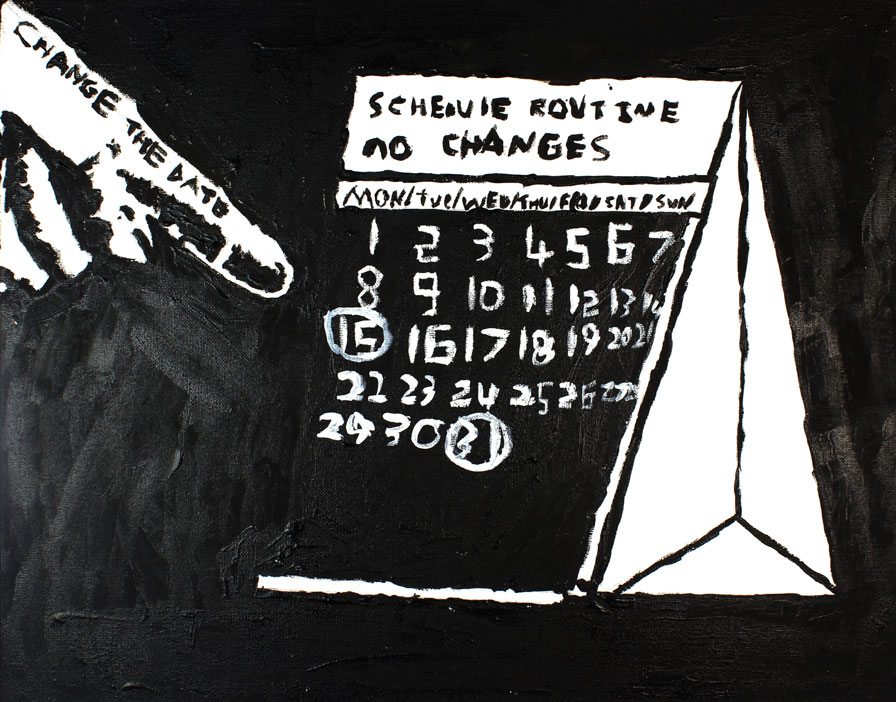 CHANGE THE DATE
SCHEDUlE ROUTINE
nO CHANGES
MON/tue/WED/THU/FRI/SAT/SUN
1 2 3 4 5 6 7
8 9 10 11 12 13 14
15 16 17 18 19 20 21
22 23 24 25 26 27 28
29 30 31